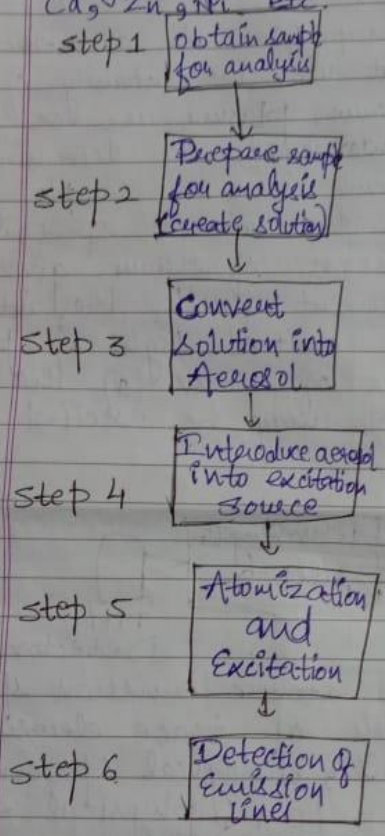 Ca, Zn, Ni etc.
step 1
obtain sample
for analysis
step 2
Prepare sample
for analysis
(create solution)
Step 3
Convert
solution into
Aerosol
Step 4
Introduce aerosol
into excitation
source
Step 5
Atomization
and
Excitation
Step 6
Detection of
Emission
lines